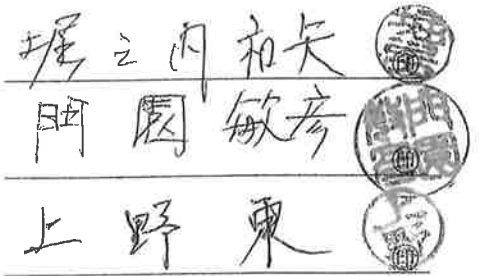 堀之内和矢 ㊞
門園敏彦 ㊞
上野東 ㊞